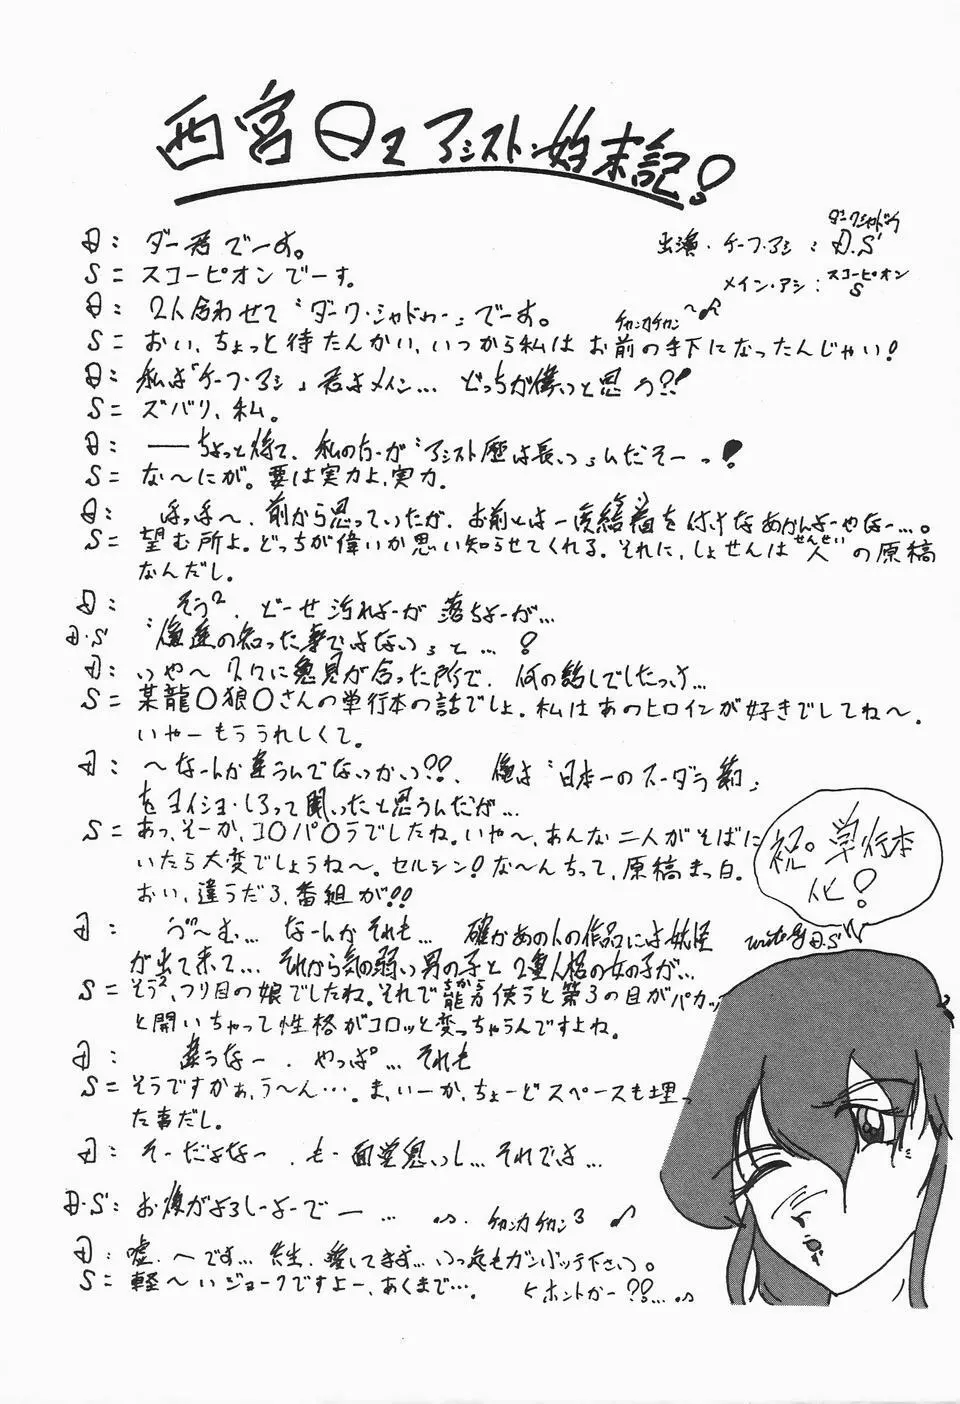 西宮 アシスト始末記!
ダークシャドウ
出演・チーフ・アシ : D.S'
スコーピオン
メイン・アシ : S
D : ダー君でーす。
S = スコーピオンでーす。
D : 2人合わせて〝ダーク・シャドゥー〟でーす。
チャンカチャン ~♪
S = おい、ちょっと待たんかい、いつから私はお前の手下になったんじゃい!
D : 私は「チーフ・アシ」君はメイン… どっちが偉いと思う?!
S = ズバリ、私。
D : ──ちょっと待て、私の方が〝アシスト歴は長い〟んだぞーっ!
S = な〜にが。要は実力よ、実力。
D : ほっほ〜、前から思っていたが、お前とは一度結着を付けなあかんよーやなー…。
S = 望む所よ。どっちが偉いか思い知らせてくれる。それに、しょせんは人(せんせい)の原稿
なんだし。
D : そう²、どーせ汚れよーが落ちよーが…
D・S 〝俺達の知った事ではない〟と…!
D : いや〜 スグに意見が合った所で、何の話しでしたっけ…
S = 某龍○狼○さんの単行本の話でしょ。私はあのヒロインが好きでしてね〜。
いやーもううれしくて。
D : 〜なーんか違うんでないかい??、俺は〝日本一のスーダラ
をヨイショ・しろって聞いたと思うんだが…
S = あっ、そーか、コ○パ○ラでしたね。いや〜、あんな二人がそばに
いたら大変でしょうね〜。セルシン! な〜んちって、原稿まっ白。
おい、違うだろ、番組が!!
祝。単行本
化!
write by D.S'
D : う〜む… なーんかそれも… 確かあの人の作品には妖怪
が出て来て… それから気の弱い男の子と2重人格の女の子が…
S = そう²、つり目の娘でしたね。それで能力(ちから)使うと第3の目がパカッ
と開いちゃって性格がコロッと変っちゃうんですよね。
D : 違うなー、やっぱ…それも
S = そうですかぁ、う〜ん…。ま、いーか、ちょーどスペースも埋っ
た事だし。
D : そーだよなー、も・面堂臭いし… それでは…
D・S : お後がよろしーよーでー … チャンカチャン³ ♪
D : 嘘。〜です… 先生、愛してます… いつ迄もガンバッテ下さい。
S = 軽〜いジョークですよー、あくまで…。 ホントかー??…